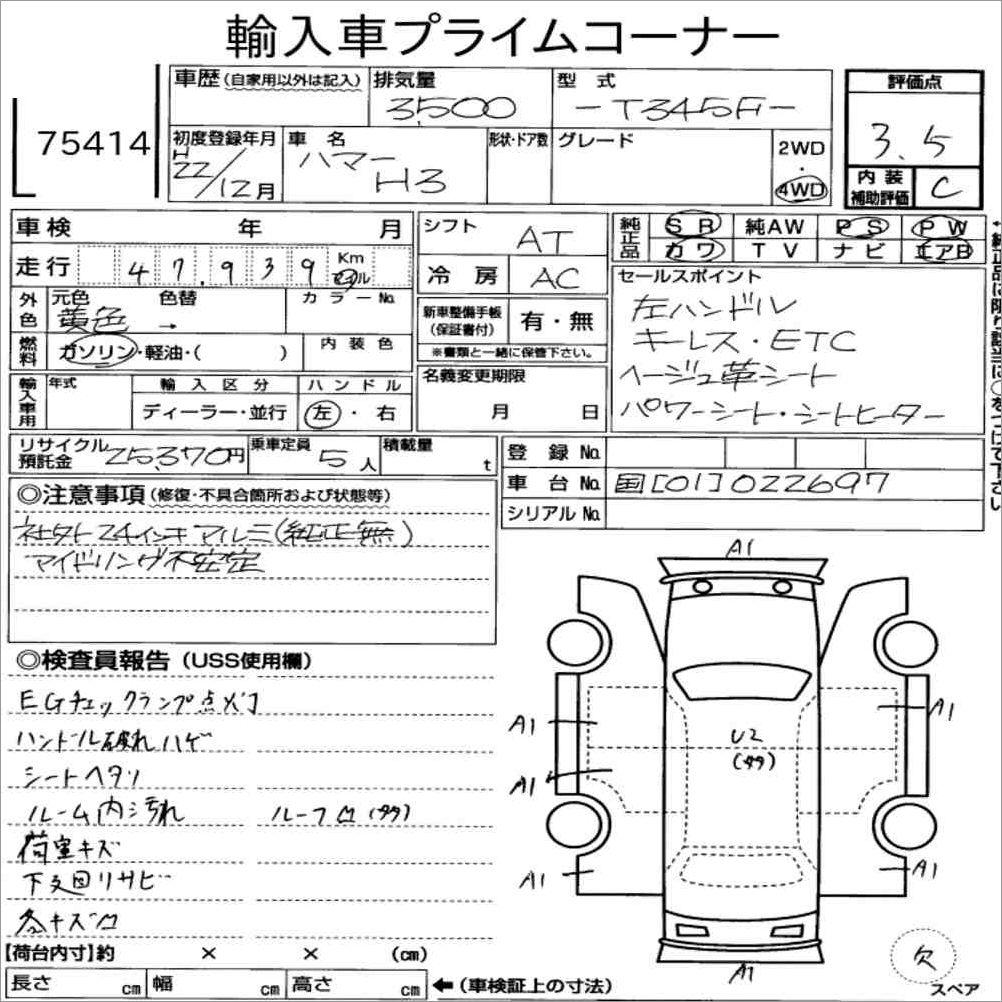 輸入車プライムコーナー
75414
車歴(自家用以外は記入)
排気量
3,500
型 式
-T345F-
評価点
3.5
初度登録年月
H
22/12月
車 名
ハマー
H3
形状・ドア数
グレード
2WD
・
4WD
内 装
補助評価
C
車検 年 月
走行 47,939 Km
マイル
シフト
AT
冷 房
AC
純正品
SR 純AW PS PW
カワ TV ナビ エアB
外色
元色
黄色
色替
→
カラーNo.
燃料
ガソリン・軽油・( )
内 装 色
新車整備手帳
(保証書付)
有・無
※書類と一緒に保管下さい。
セールスポイント
左ハンドル
キーレス・ETC
ベージュ革シート
パワーシート・シートヒーター
輸入車用
年式
輸 入 区 分
ディーラー・並行
ハ ン ド ル
左・右
名義変更期限
月 日
リサイクル
預託金
25,370円
乗車定員
5人
積載量
t
登 録 No.
車 台 No.
国[01]022697
シリアル No.
◎注意事項(修復・不具合箇所および状態等)
社外24インチアルミ(純正無)
アイドリング不安定
◎検査員報告(USS使用欄)
EGチェックランプ点灯
ハンドル破れハゲ
シートヘタリ
ルーム内汚れ
ルーフ凹(タタ)
荷室キズ
下廻りサビ
各キズ凹
A1
A1
A1
U2
(タタ)
A1
A1
A1
A1
欠
スペア
【荷台内寸】約 × × (cm)
長さ cm 幅 cm 高さ cm
←(車検証上の寸法)